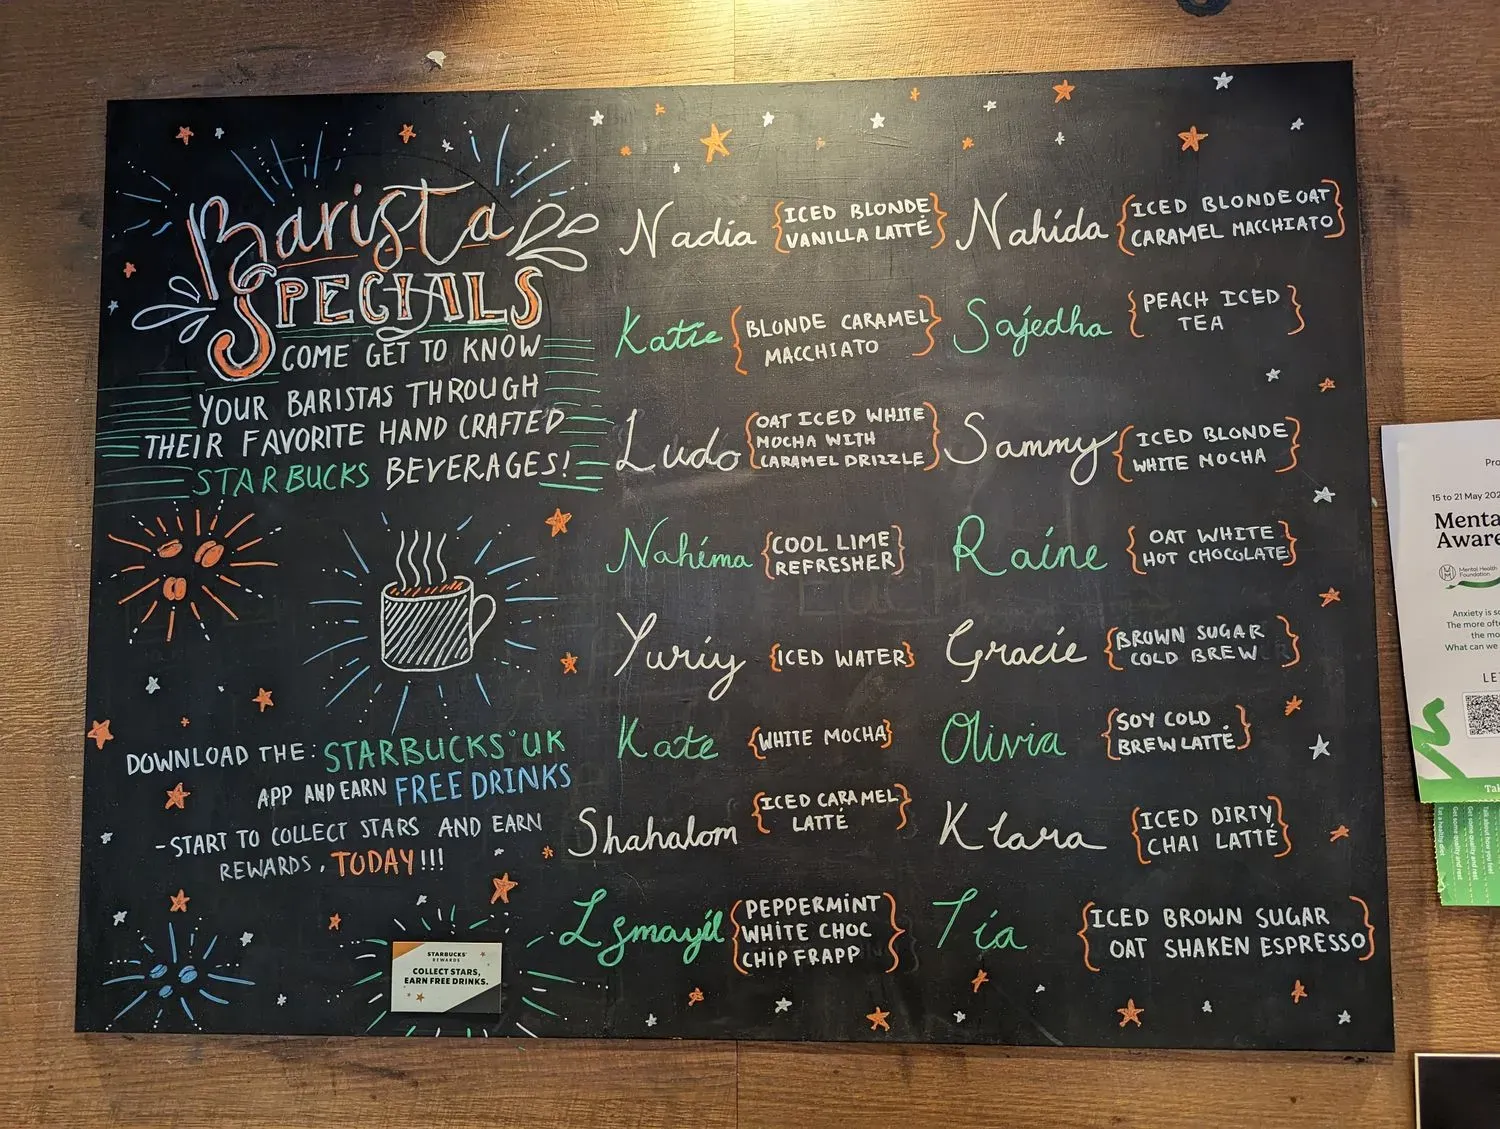 Barista
SPECIALS
COME GET TO KNOW
YOUR BARISTAS THROUGH
THEIR FAVORITE HAND CRAFTED
STARBUCKS BEVERAGES!
DOWNLOAD THE: STARBUCKS UK
APP AND EARN FREE DRINKS
-START TO COLLECT STARS AND EARN
REWARDS, TODAY!!!
STARBUCKS
REWARDS
COLLECT STARS,
EARN FREE DRINKS.
Nadia {ICED BLONDE
VANILLA LATTÉ}
Katie {BLONDE CARAMEL
MACCHIATO}
Ludo {OAT ICED WHITE
MOCHA WITH
CARAMEL DRIZZLE}
Nahima {COOL LIME
REFRESHER}
Yuriy {ICED WATER}
Kate {WHITE MOCHA}
Shahalom {ICED CARAMEL
LATTÉ}
Ismayil {PEPPERMINT
WHITE CHOC
CHIP FRAPP}
Nahida {ICED BLONDE OAT
CARAMEL MACCHIATO}
Sajedha {PEACH ICED
TEA}
Sammy {ICED BLONDE
WHITE MOCHA}
Raine {OAT WHITE
HOT CHOCOLATE}
Gracie {BROWN SUGAR
COLD BREW}
Olivia {SOY COLD
BREW LATTÉ}
Klara {ICED DIRTY
CHAI LATTÉ}
Tia {ICED BROWN SUGAR
OAT SHAKEN ESPRESSO}
15 to 21 May 202
Menta
Aware
Mental Health
Foundation
Anxiety is
The more
the
What can we